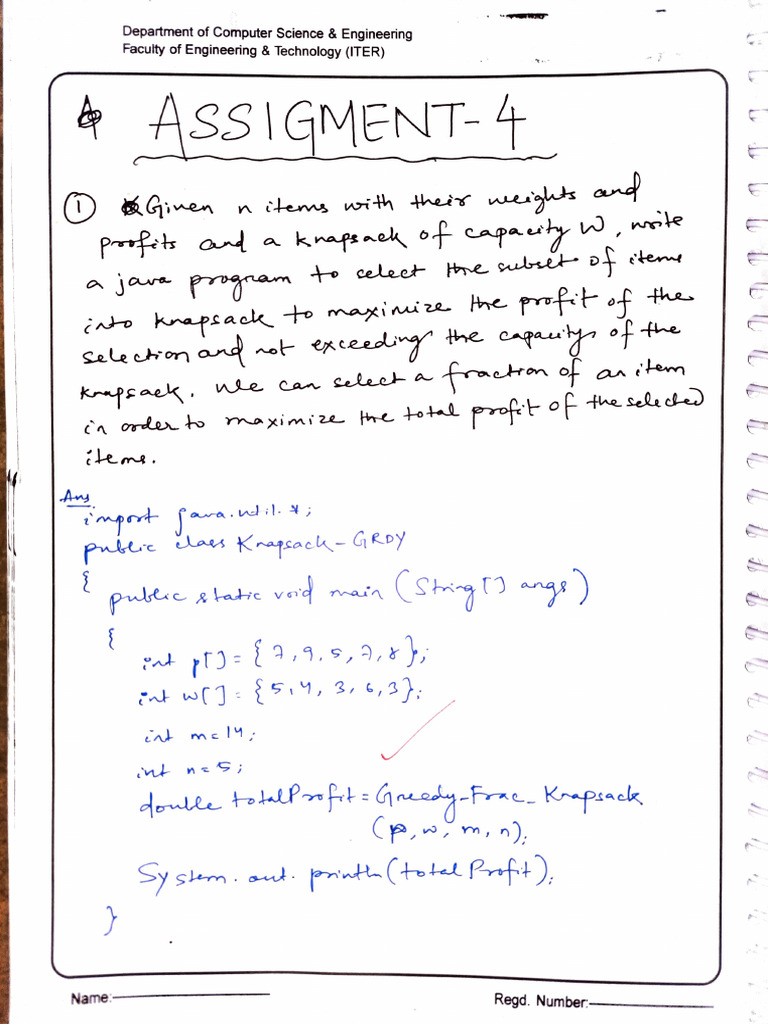 Department of Computer Science & Engineering
Faculty of Engineering & Technology (ITER)
ASSIGMENT-4
① Given n items with their weights and
profits and a knapsack of capacity W, write
a java program to select the subset of items
into knapsack to maximize the profit of the
selection and not exceeding the capacity of the
knapsack. We can select a fraction of an item
in order to maximize the total profit of the selected
items.
Ans
import java.util.*;
public class Knapsack-GRDY
{
public static void main (String [] args)
{
int p[] = {7,9,5,7,8};
int w[] = {5,4,3,6,3};
int m=14;
int n=5;
double totalProfit = Greedy_Frac_Knapsack
(p,w,m,n);
System.out.println(totalProfit);
}
Name:
Regd. Number: